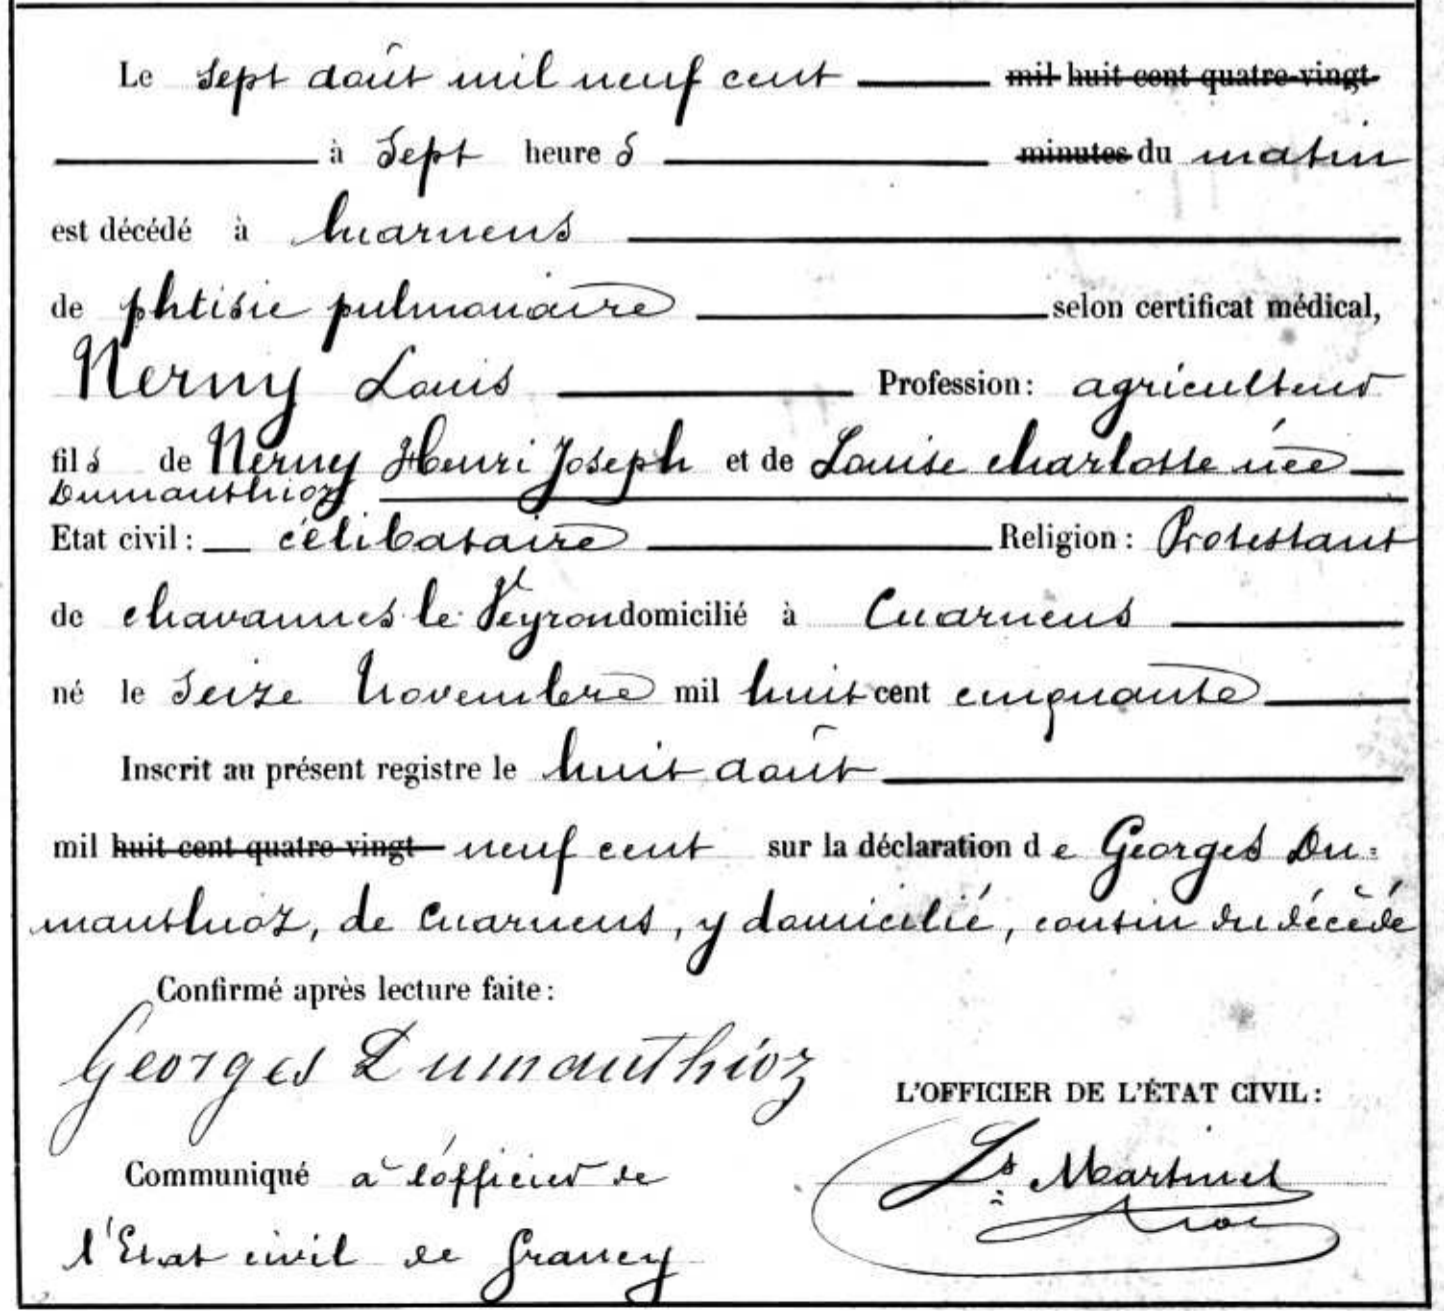 Le sept août mil neuf cent mil huit cent quatre-vingt
à Sept heures minutes du matin
est décédé à Cuarnens
de phtisie pulmonaire selon certificat médical,
Nerny Louis Profession: agriculteur
fils de Nerny Henri Joseph et de Louise Charlotte née
Dumauthioz
Etat civil: célibataire Religion: Protestant
de Chavannes le Veyron domicilié à Cuarnens
né le Seize Novembre mil huit cent cinquante
Inscrit au présent registre le huit août
mil huit cent quatre-vingt neuf cent sur la déclaration de Georges Du=
mauthioz, de Cuarnens, y domicilié, cousin du décédé
Confirmé après lecture faite:
Georges Dumauthioz
L'OFFICIER DE L'ÉTAT CIVIL:
Communiqué à l'officier de
Ls Martinet
l'Etat civil de Grancy